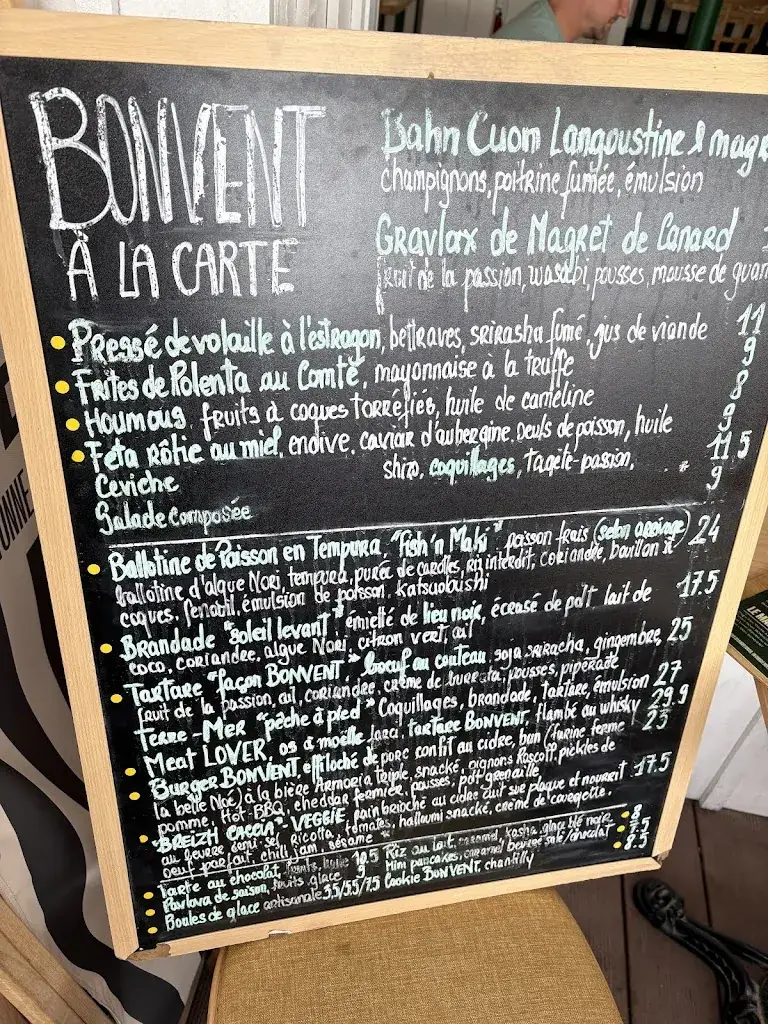 BONVENT
À LA CARTE
Bahn Cuon Langoustine & magr
champignons, poitrine fumée, émulsion
Gravlax de Magret de Canard
fruit de la passion, wasabi, pousses, mousse de guan
Pressé de volaille à l'estragon, bettraves, sriracha fumé, jus de viande 11
Frites de Polenta au Comté, mayonnaise à la truffe 9
Houmous, fruits à coques torréfiés, huile de cameline 8
Feta rôtie au miel, endive, caviar d'aubergine, oeufs de poisson, huile 9
shizo, coquillages, tagete-passion. 11 5
Ceviche
Salade composée * 9
Ballotine de Poisson en Tempura, "Fish'n Maki" poisson frais (selon arrivage) 24
ballotine d'algue Nori, tempura, purée de carottes, riz interdit, coriandre, bouillon
coques, fenouil, émulsion de poisson, katsuobushi
Brandade "soleil levant" émietté de lieu noir, écrasé de pdt lait de 17.5
coco, coriandre, algue Nori, citron vert, ail
Tartare "façon BONVENT", boeuf au couteau, soja, sriracha, gingembre, 25
fruit de la passion, ail, coriandre, crème de burrata, pousses, piperade
Terre-Mer "pêche à pied" Coquillages, brandade, tartare, émulsion 27
Meat LOVER, os à moëlle, tartare BONVENT, flambé au whisky 29.9
Burger BONVENT, effiloché de porc confit au cidre, bun (farine ferme 23
la belle Noé) à la bière Armoria triple, snacké, oignons Roscoff, pickles de
pomme, Hot-BBQ, cheddar fermier, pousses, pdt grenaille
"BREIZH CROCN" VEGGIE, pain brioché au cidre cuit sur plaque et nourrit 17.5
au beurre demi sel, Ricotta, tomates, halloumi snacké, crème de courgette,
oeuf parfait, chili jam, sésame *
Tarte au chocolat, fruits, 10.5
Pavlova de saison, fruits, glace 9
Boules de glace artisanale 3.5/5.5/7.5
Riz au lait, caramel, kasha, glace blé noir 8
Mini pancakes, caramel beurre salé/chocolat
Cookie BONVENT, chantilly